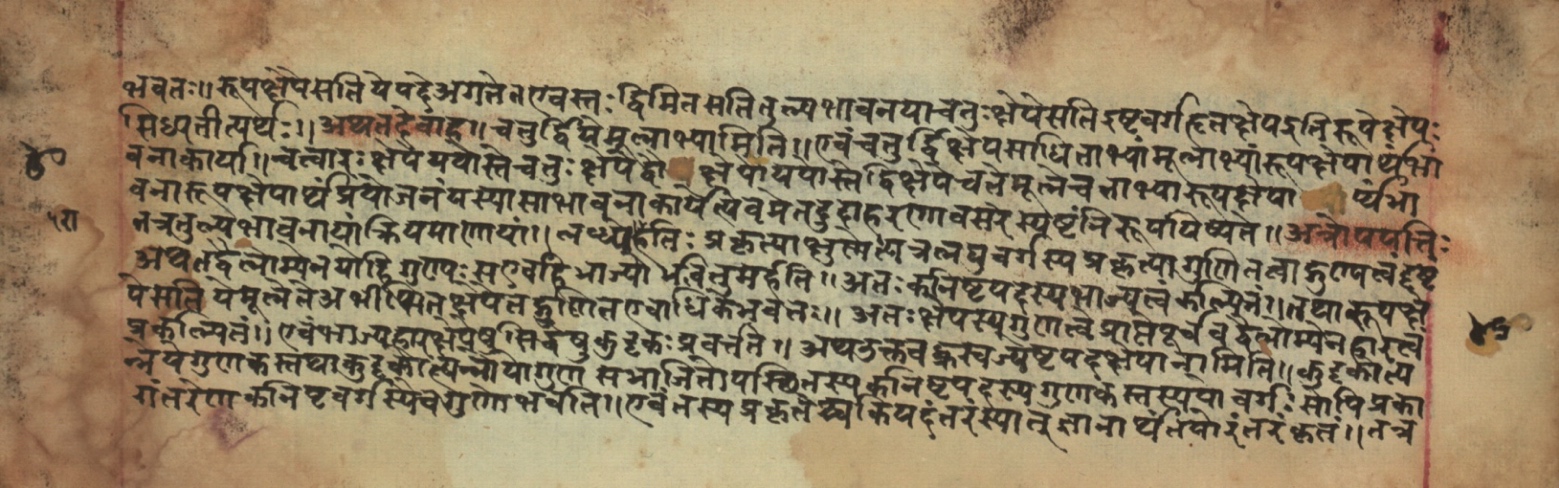 भवतः॥ रूपक्षेपे सति ये पदे अगते त एव स्तः द्विमित सति तुल्यभावनया चतुःक्षेपे सति इष्टवर्गहृतक्षेप इति रूपक्षेपः
सिध्यतीत्यर्थः॥ अथ तदेवाह॥ चतुर्द्विक्षेपमूलाभ्यामिति॥ एवं चतुर्द्विक्षेपसाधिताभ्यां मूलाभ्यां रूपक्षेपार्थंभा
वनाकार्या॥ चत्वारः क्षेपे ययोस्ते चतुःक्षेपे द्वौ क्षेपो ययोस्ते द्विक्षेपे च ते मूले च ताभ्यां रूपक्षेपा र्थंभा
वनारूपक्षेपार्थं प्रयोजनं यस्या सा भावनाकार्येत्यवमेतदुदाहरणावसरे स्पष्टं निरूपयिष्यते॥ अत्रोपपत्तिः
तत्र तुल्यभावनायां क्रियमाणायां॥ प्रकृत्या लघुवर्गस्य प्रकृत्या गुणितत्वा
अथ तद्वैलोम्येन योहि गुणकः स एव हि भाज्यो भवितुमर्हति॥ अतः कनिष्टपदस्य भाज्यत्वं कल्पितं॥ तथा रूपक्षे
पे सति ये मूले ते अभीप्सितक्षेपेत एवाधिके भवतः॥ अतः क्षेपस्य गुणत्वे प्राप्ते पूर्ववद्वैलोम्येन हारत्वं
प्रकल्पितं॥ एवं भाज्यहारक्षेपेषु सिद्धेषु कुट्टकः प्रवर्त्तते॥ अथ उक्तवद्ध्रस्वज्येष्टपदक्षेपानामिति॥ कुट्टकोत्प
न्नयगुणकस्तथा कुट्टकोत्पन्नो यो गुण कनिष्टपदस्य गुणकस्तस्य यो वर्गः सोपि प्रका
रांतरेण कनिष्टवर्गस्यैव गुणो भवति॥ एवं तस्य प्रकृतेश्च कियदंतरं स्यात् ज्ञानार्थं तयोरंतरं कृतं॥ तत्र